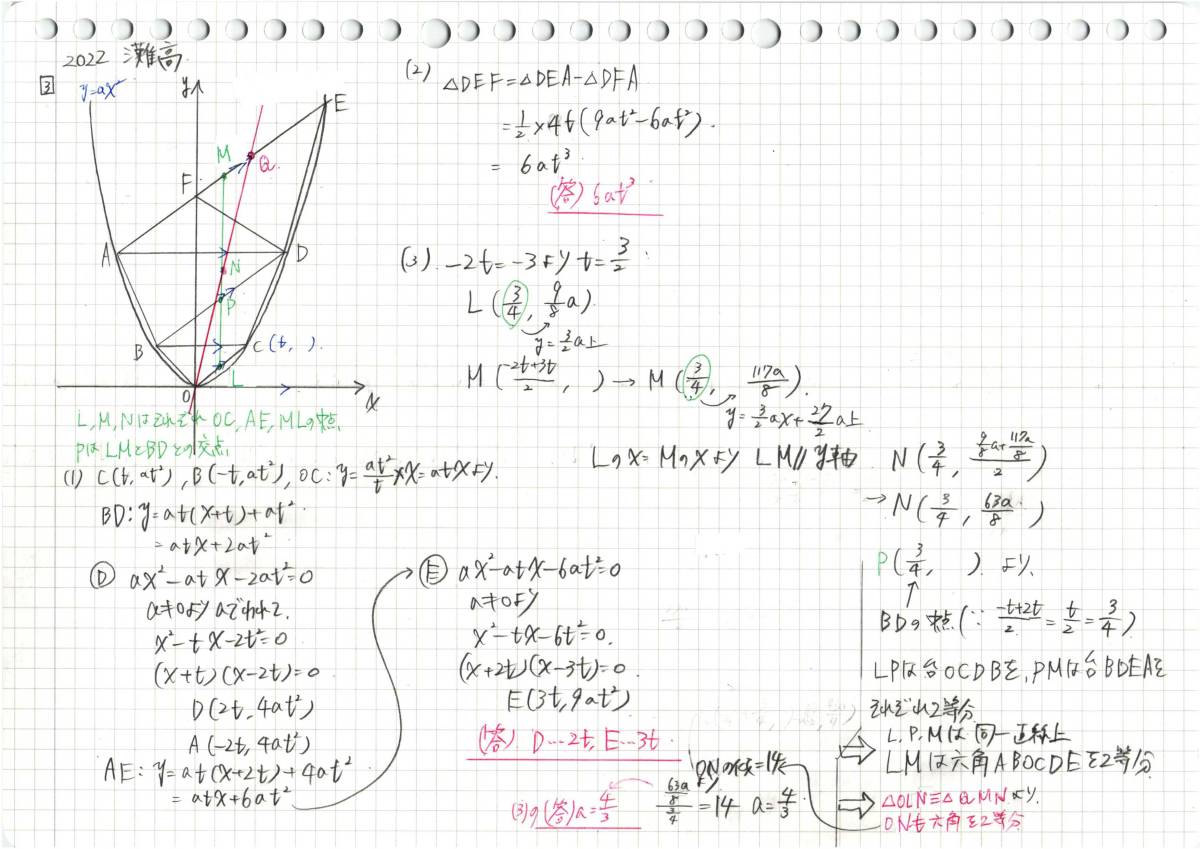 2022 灘高
3
y=ax²
y
E
M
Q
F
A
D
N
P
B
C(t, ).
O
L
x
L, M, NはそれぞれOC, AE, MLの中点
PはLMとBDとの交点
(1) C(t, at²), B(-t, at²), OC: y=at²/t×x=atxより.
BD: y=at(x+t)+at²
=atx+2at²
Ⓓ ax²-atx-2at²=0
a≠0よりaでわって.
x²-tx-2t²=0
(x+t)(x-2t)=0
D(2t, 4at²)
A(-2t, 4at²)
AE: y=at(x+2t)+4at²
=atx+6at²
Ⓔ ax²-atx-6at²=0
a≠0より
x²-tx-6t²=0.
(x+2t)(x-3t)=0
E(3t, 9at²)
(答). D…2t, E…3t
(2) △DEF=△DEA-△DFA
=1/2×4t(9at²-6at²).
= 6at³
(答) 6at³
(3). -2t=-3より t=3/2
L(3/4, 9/8a).
y=3/2a上
M(-2t+3t/2, )→M(3/4, 117a/8).
y=3/2ax+27/2a上
Lのx=Mのxより LM∥y軸
N(3/4, 9/8a+117a/8/2)
→N(3/4, 63a/8)
P(3/4, ). より、
BDの中点(∵ -t+2t/2=t/2=3/4)
LPは台OCDBを, PMは台BDEAを
それぞれ2等分
L, P, Mは同一直線上
⇒ LMは六角ABOCDEを2等分
⇒ △OLN≡△QMNより.
ONも六角を2等分
ONの傾=14
より
63a/8/3/4=14 a=4/3
(3)の(答)a=4/3